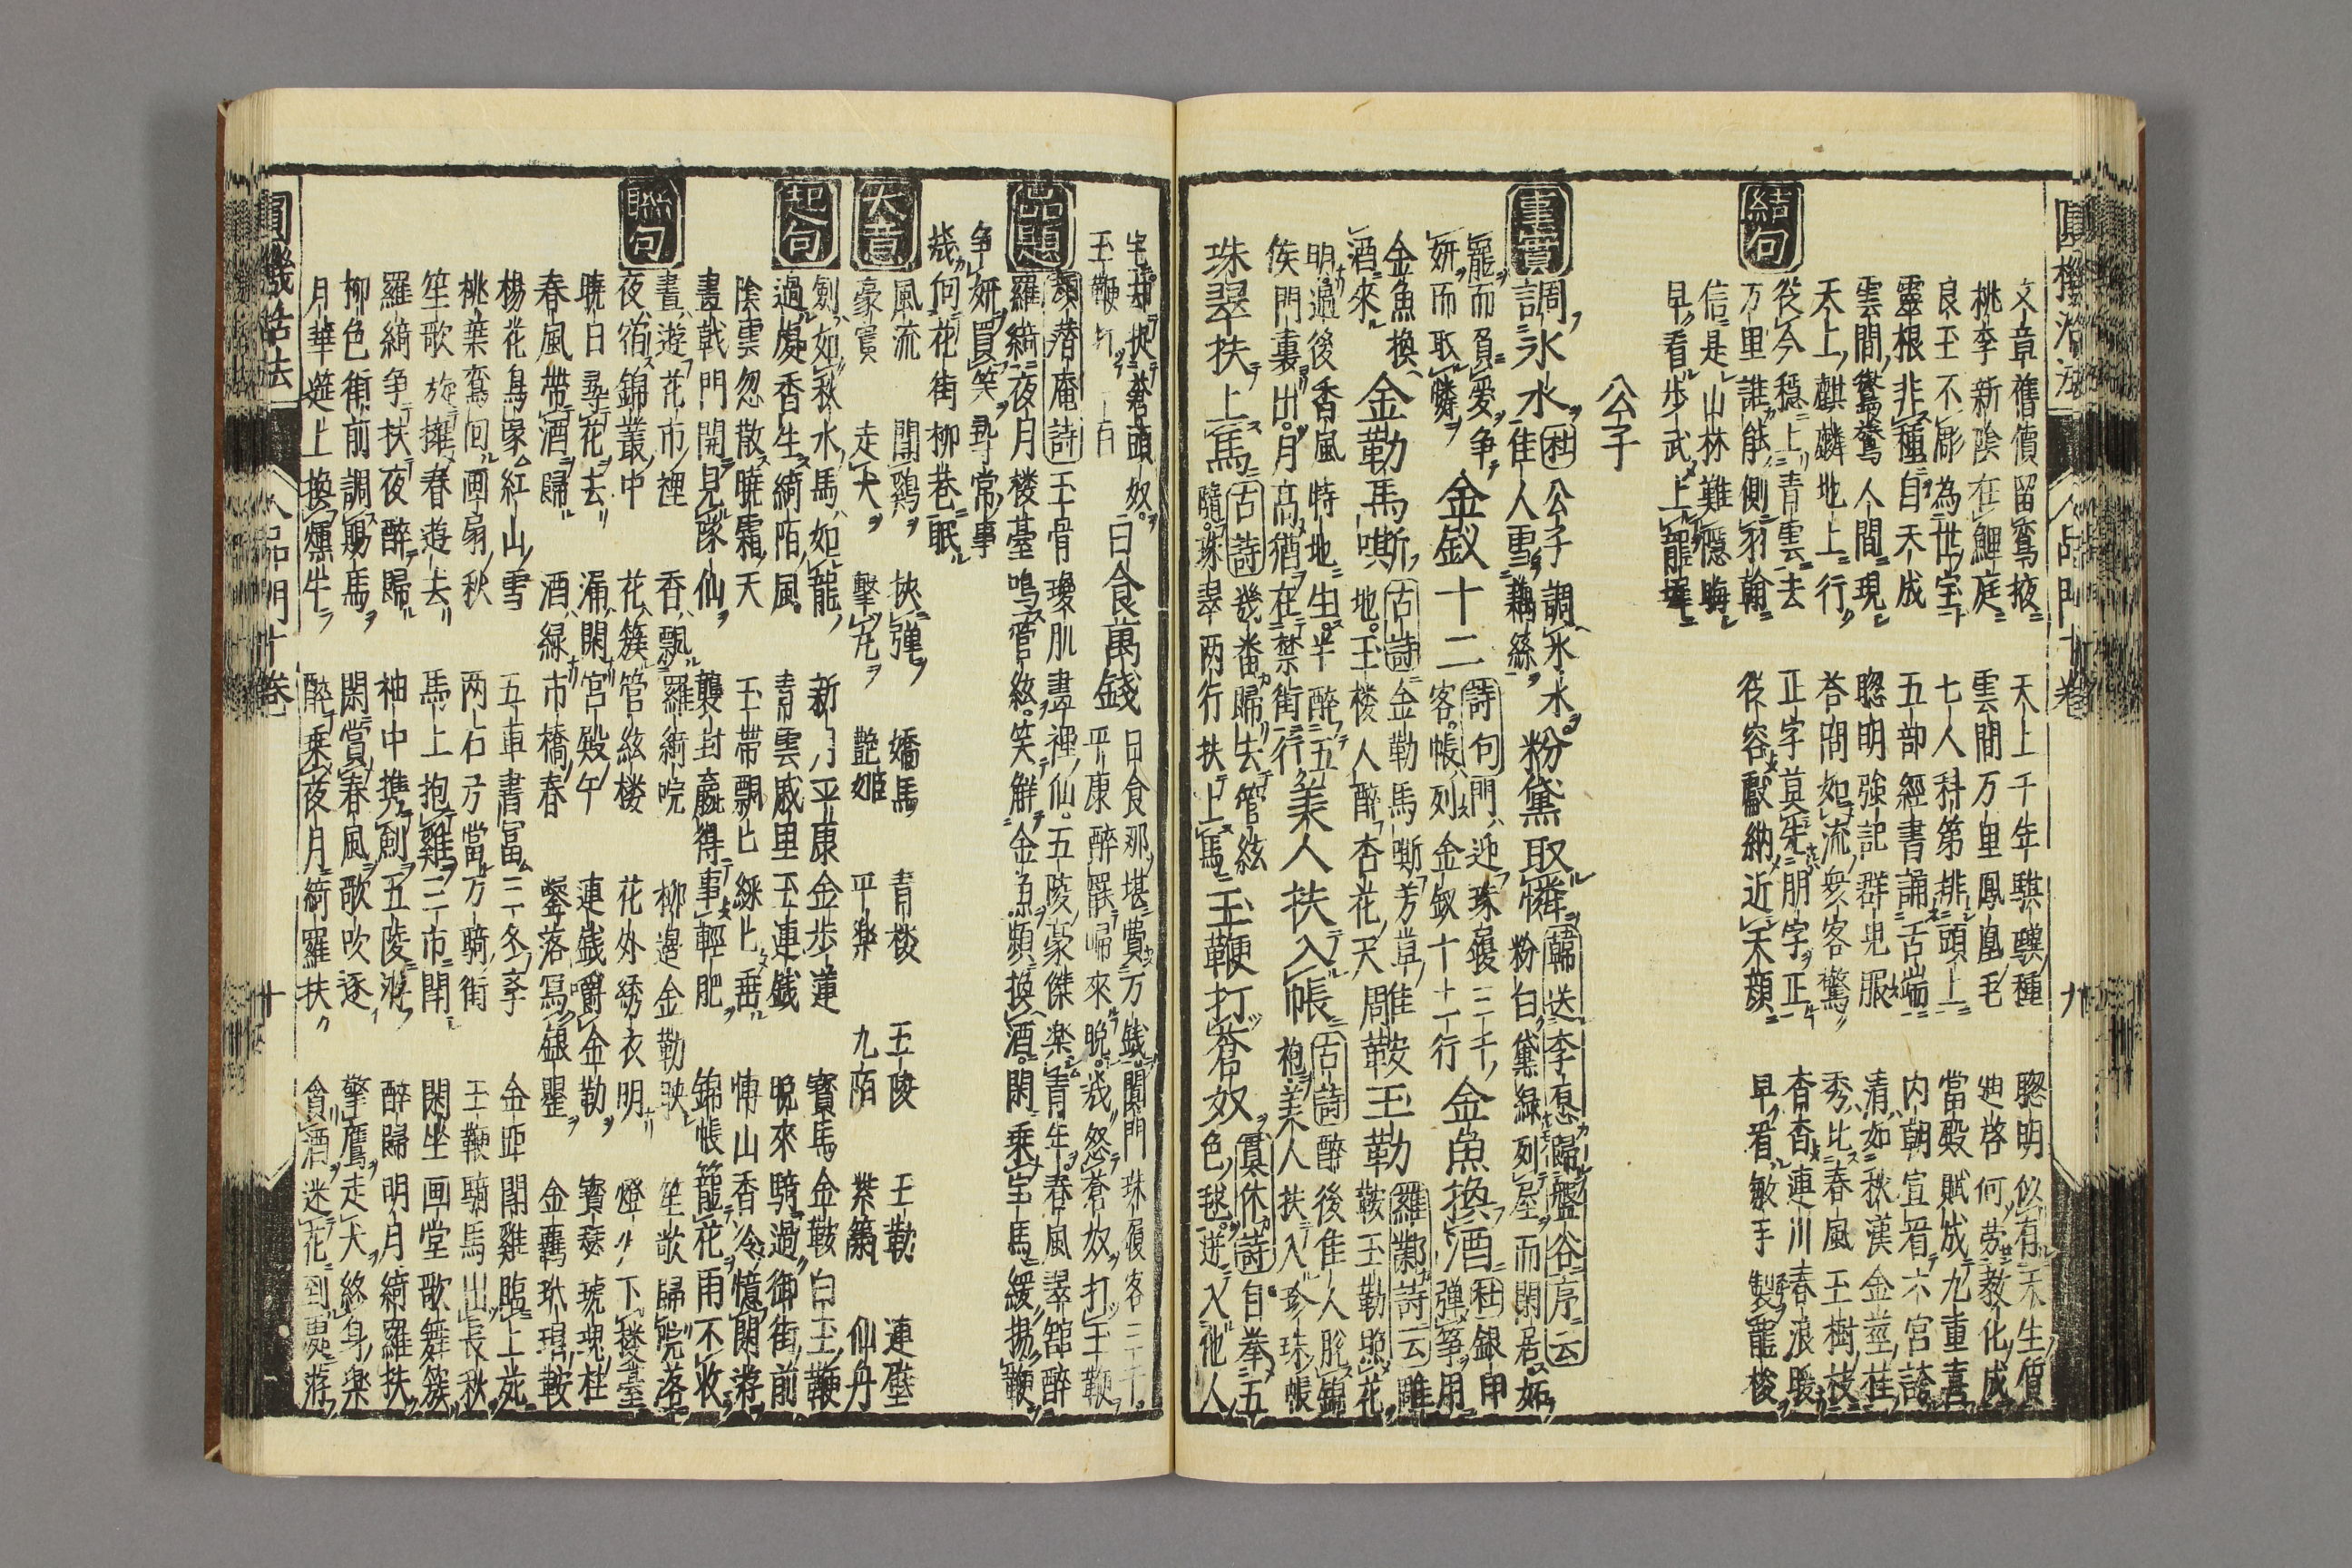 文章舊價留鸞掖　天上千年騏驥種　聰明似有天生價
桃李新陰在鯉庭　雲間万里鳳凰毛　廸啓何劳教化成
良玉不彫為世宝　七人科第排頭上　當殿賦成九重喜
靈根非種自天成　五部經書誦舌端　内朝宣看六宮誇
雲間鸑鷟人間現　聡明強記群児服　清如秋漢金莖桂
天上麒麟地上行　答問如流衆客驚　秀比春風玉樹枝
結句
従今穏上青雲去　正字莫先朋字正　杳杳連川春浪暖
万里誰能側羽翰　従容献納近天顔　早看敏手製龍梭
信是山林難隱晦
早看歩武上龍墀
公子
事實
調氷水
杜公子調氷水
佳人雪藕絲
粉黛取憐
韓送李愿歸盤谷序云
粉白黛緑列屋而閑居妬
寵而負愛争
妍而取憐
金釵十二
詩句門迎珠履三千
客帳列金釵十二行
金魚換酒
杜銀甲
弾箏用
金魚換
酒來
金勒馬嘶
古詩金勒馬嘶芳草
地玉楼人酔杏花天
雕鞍玉勒
羅鄴詩云雕
鞍玉勒照花
明過後香風特地生半酔五
侯門裏出月高猶在禁街行
美人扶入帳
古詩酔後佳人脱錦
袍美人扶入珍珠帳
珠翠扶上馬
古詩幾番歸去管絃
随珠翠両行扶上馬
玉鞭打蒼奴
貫休詩自拳五
色毬迸入他人
宅却捉蒼頭奴
玉鞭打一百
日食萬錢
日食那堪費万錢閑門珠履客三千
平康酔罷歸來晩幾怒蒼奴打玉鞭
品題
顔潜庵詩玉骨瓊肌畫裡仙五陵豪傑楽青年春風翠舘酔
羅綺夜月楼臺鳴管絃笑觧金魚頻換酒閑乗宝馬緩揚鞭
争妍買笑尋常事
幾向花街柳巷眠
大意
風流　鬪鷄　挾弾　嬌馬　青楼　五陵　玉勒　連壁
豪賓　走犬　撃丸　艶姫　平楽　九陌　紫簫　仙丹
起句
劍如秋水馬如龍　新月平康金歩蓮　寶馬金鞍白玉鞭
過處香生綺陌風　青雲戚里玉連錢　晩來騎過御街前
陰雲忽散暁霜天　玉帯飄匕綵匕垂　博山香冷憶閑游
畫戟門開見隊仙　襲封贏得事軽肥　錦帳籠花雨不收
聯句
晝遊花市裡　香飄羅綺院　柳邊金勒駛　笙歌歸院落
夜宿錦叢中　花簇管絃楼　花外綉衣明　燈火下楼臺
暁日尋花去　漏閑宮殿午　連錢嚼金勒　寶瑟琥瑰柱
春風帯酒歸　酒緑市橋春　鑿落冩銀罌　金羈玳瑁鞍
楊花鳥家紅山雪　五車書富三冬学　金距鬪雞臨上苑
桃葉鸞回画扇秋　両石弓當万騎街　玉鞭騎馬出長秋
笙歌旋擁春遊去　馬上抱雞三市鬪　閑坐画堂歌舞簇
羅綺争扶夜酔歸　袖中携劍五陵游　酔歸明月綺羅扶
柳色街前調騘馬　閑賞春風歌吹逐　擎鷹走犬終身楽
月華筵上換燻牛　酔乗夜月綺羅扶　貪酒迷花到處游
圓機活法
人品門十巻
九
圓機活法
人品門十巻
十